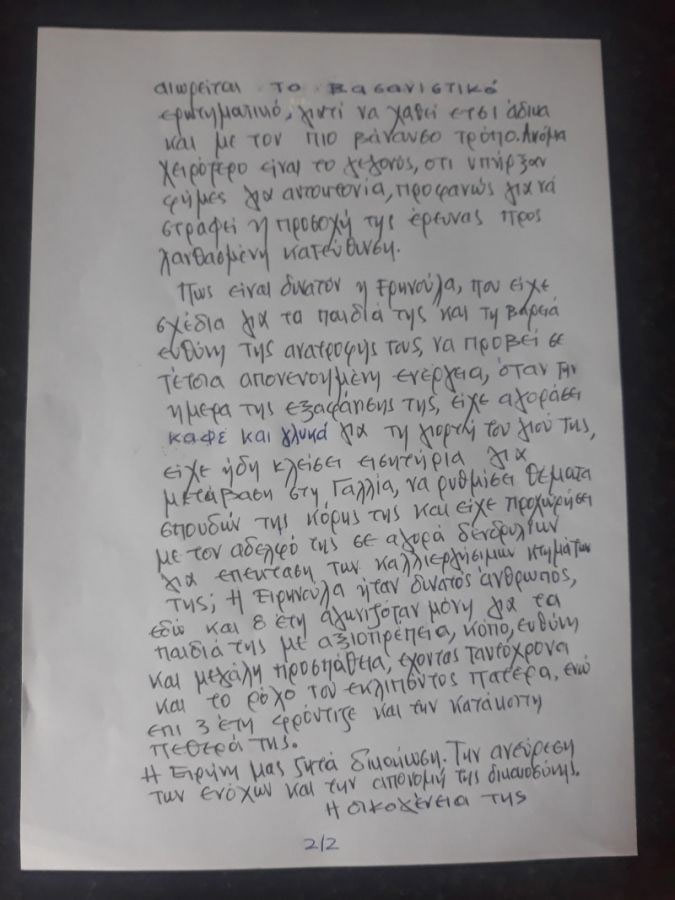 αιωρείται το βασανιστικό
ερωτηματικό, γιατί να χαθεί έτσι άδικα
και με τον πιο βάναυσο τρόπο. Ακόμα
χειρότερο είναι το γεγονός, ότι υπήρξαν
φήμες για αυτοκτονία, προφανώς για να
στραφεί η προσοχή της έρευνας προς
λανθασμένη κατεύθυνση.
Πως είναι δυνατόν η Ειρηνούλα, που είχε
σχέδια για τα παιδιά της και τη βαρειά
ευθύνη της ανατροφής τους, να προβεί σε
τέτσια απονενοημένη ενέργεια, όταν την
ημερα της εξαφάνισης της, είχε αγοράσει
καφέ και γλυκά για τη γιορτή του γιού της,
είχε ήδη κλείσει εισητήρια για
μετάβαση στη Γαλλία, να ρυθμίσει θέματα
σπουδών της κόρης της και είχε προχωρήσει
με τον αδελφό της σε αγορά δενδρυλίων
για επέκταση των καλλιεργήσιμων κτημάτων
της; Η Ειρηνούλα ήταν δυνατός άνθρωπος,
εδώ και 8 έτη αγωνιζόταν μόνη για τα
παιδιά της με αξιοπρέπεια, κόπο, ευθύνη
και μεγάλη προσπάθεια, έχοντας ταυτόχρονα
και το ρόλο του εκλιπόντος πατέρα, ενώ
επι 3 έτη φρόντιζε και την κατάκοιτη
πεθερά της.
Η Ειρήνη μας ζητά δικαίωση. Την ανεύρεση
των ενόχων και την απονομή της δικαιοσύνης.
Η οικογένεια της
2/2